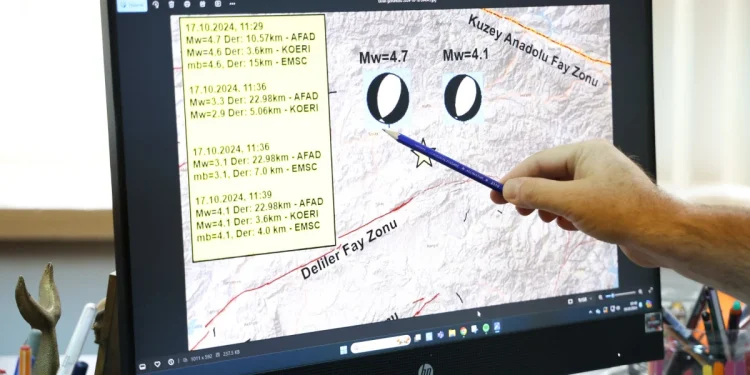 17.10.2024, 11:29
Mw=4.7 Der: 10.57km - AFAD
Mw=4.6 Der: 3.6km - KOERI
mb=4.6, Der: 15km - EMSC
17.10.2024, 11:36
Mw=3.3 Der: 22.98km - AFAD
Mw=2.9 Der: 5.06km - KOERI
17.10.2024, 11:36
Mw=3.1 Der: 22.98km - AFAD
mb=3.1, Der: 7.0 km - EMSC
17.10.2024, 11:39
Mw=4.1 Der: 22.98km - AFAD
Mw=4.1 Der: 3.6km - KOERI
mb=4.1, Der: 4.0 km - EMSC
Mw=4.7
Mw=4.1
Kuzey Anadolu Fay Zonu
Deliler Fay Zonu
hp